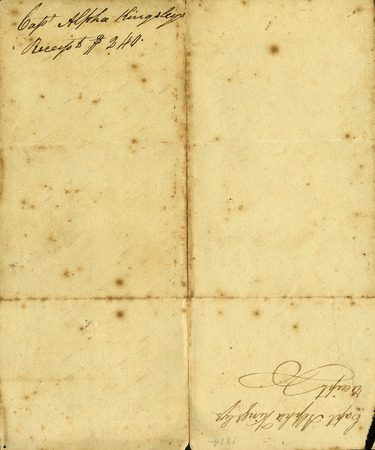 Capt Alpha Kingsleys
Receipt $ 240.
Capt Alpha Kingslys
receipt
1814